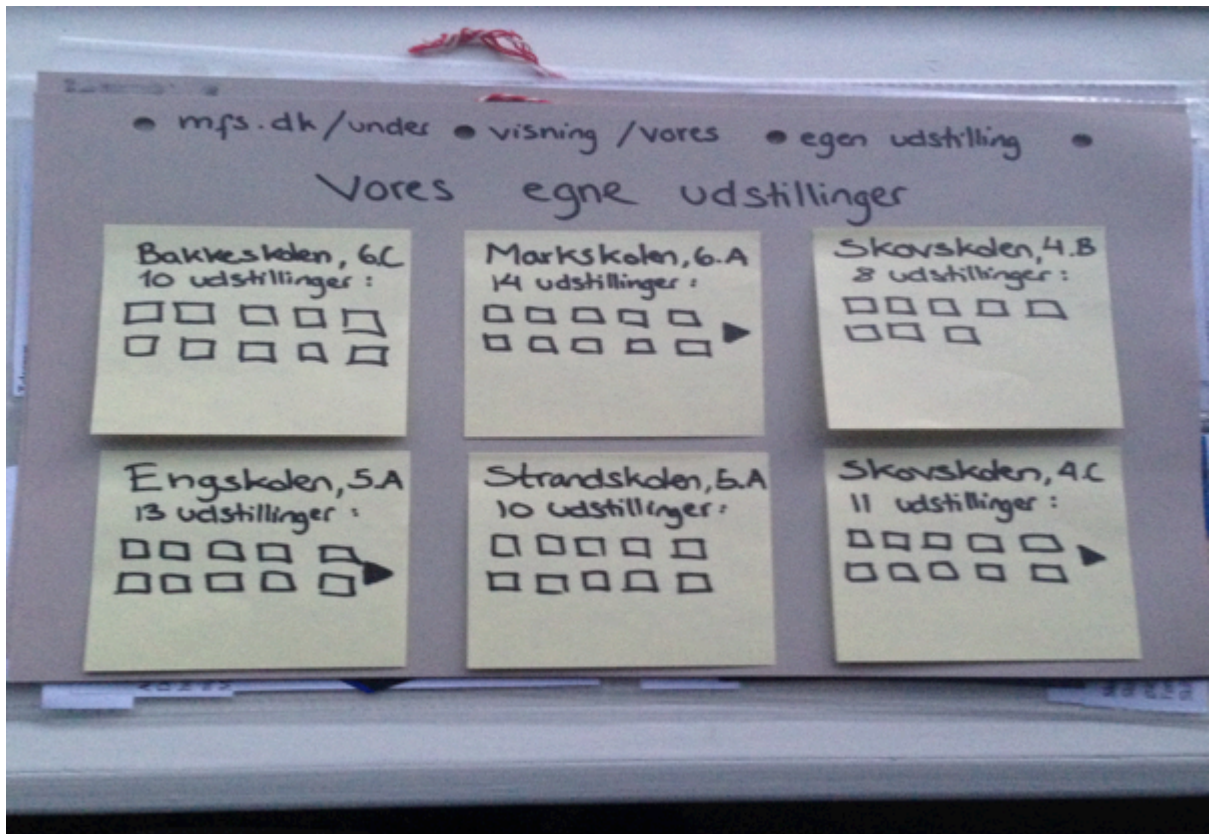 • mfs.dk/under • visning /vores • egen udstilling •
Vores egne udstillinger
Bakkeskolen, 6.C
10 udstillinger :
Markskolen, 6.A
14 udstillinger :
Skovskolen, 4.B
8 udstillinger :
Engskolen, 5.A
13 udstillinger :
Strandskolen, 5.A
10 udstillinger :
Skovskolen, 4.C
11 udstillinger :